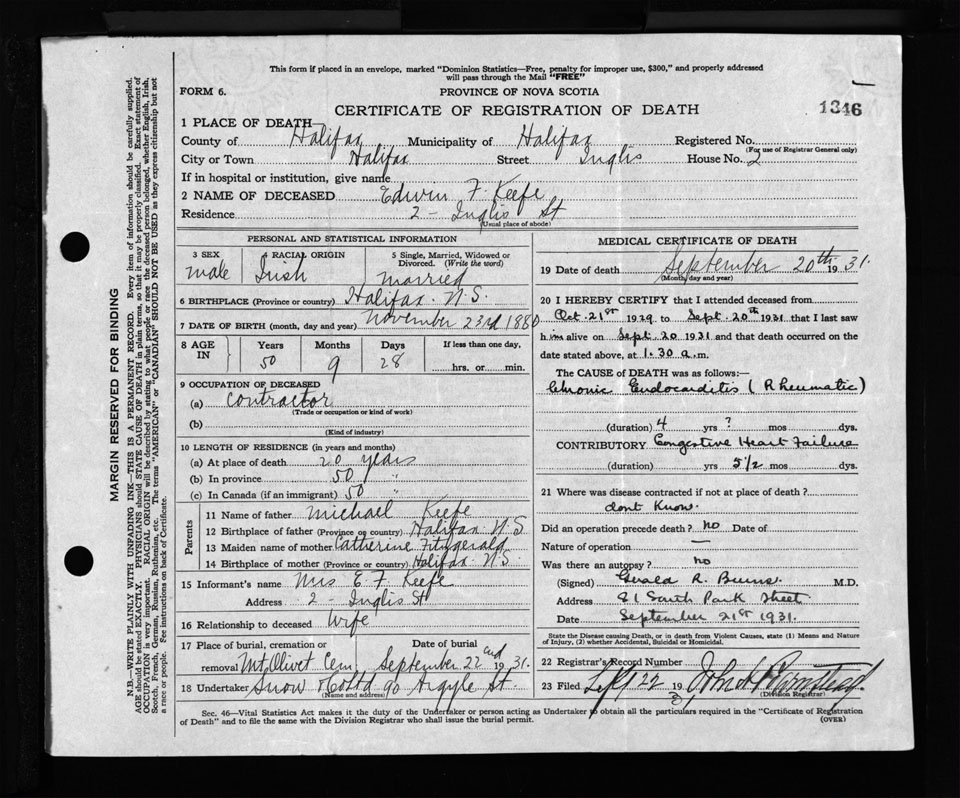 This form if placed in an envelope, marked "Dominion Statistics—Free, penalty for improper use, $300," and properly addressed
will pass through the Mail "FREE"
FORM 6.
PROVINCE OF NOVA SCOTIA
CERTIFICATE OF REGISTRATION OF DEATH
1346
1 PLACE OF DEATH—
County of Halifax Municipality of Halifax Registered No.
(For use of Registrar General only)
City or Town Halifax Street Inglis House No. 2
If in hospital or institution, give name
2 NAME OF DECEASED Edwin F. Keefe
Residence 2 - Inglis St
(Usual place of abode)
PERSONAL AND STATISTICAL INFORMATION
3 SEX
male
4 RACIAL ORIGIN
Irish
5 Single, Married, Widowed or
Divorced. (Write the word)
married
6 BIRTHPLACE (Province or country) Halifax. N.S.
7 DATE OF BIRTH (month, day and year) November 23rd 1880
8 AGE
IN
Years
50
Months
9
Days
28
If less than one day,
hrs. or min.
9 OCCUPATION OF DECEASED
(a) Contractor
(Trade or occupation or kind of work)
(b)
(Kind of industry)
10 LENGTH OF RESIDENCE (in years and months)
(a) At place of death 20 years
(b) In province 50 "
(c) In Canada (if an immigrant) 50 "
Parents
11 Name of father Michael Keefe
12 Birthplace of father (Province or country) Halifax N.S
13 Maiden name of mother Catherine Fitzgerald
14 Birthplace of mother (Province or country) Halifax N.S
15 Informant's name Mrs E. F. Keefe
Address 2 - Inglis St
16 Relationship to deceased Wife
17 Place of burial, cremation or
removal Mt Olivet Cem.
Date of burial
September 22nd 1931.
18 Undertaker Snow & Co Ltd 90 Argyle St.
(Name and address)
MEDICAL CERTIFICATE OF DEATH
19 Date of death September 20th 1931.
(Month, day and year)
20 I HEREBY CERTIFY that I attended deceased from
Oct. 21st 1929 to Sept. 20th 1931 that I last saw
him alive on Sept. 20 1931 and that death occurred on the
date stated above, at 1.30 a.m.
The CAUSE of DEATH was as follows:—
Chronic Endocarditis (Rheumatic)
(duration) 4 yrs ? mos dys.
CONTRIBUTORY Congestive Heart Failure
(duration) yrs 5 1/2 mos dys.
21 Where was disease contracted if not at place of death?
dont Know.
Did an operation precede death? no Date of
Nature of operation —
Was there an autopsy? no
(Signed) Gerald R. Burns. M.D.
Address 81 South Park Street.
Date September 21st 1931.
State the Disease causing Death, or in death from Violent Causes, state (1) Means and Nature
of Injury, (2) whether Accidental, Suicidal or Homicidal.
22 Registrar's Record Number
23 Filed Sept 22 193
(Division Registrar)
Sec. 46—Vital Statistics Act makes it the duty of the Undertaker or person acting as Undertaker to obtain all the particulars required in the "Certificate of Registration
of Death" and to file the same with the Division Registrar who shall issue the burial permit.
(OVER)
MARGIN RESERVED FOR BINDING
N.B.—WRITE PLAINLY WITH UNFADING INK—THIS IS A PERMANENT RECORD. Every item of information should be carefully supplied.
AGE should be stated EXACTLY. PHYSICIANS should STATE CAUSE OF DEATH in plain terms, so that it may be properly classified. Exact statement of
OCCUPATION is very important. RACIAL ORIGIN will be described by stating to what people or race the deceased person belonged, whether English, Irish,
Scotch, French, German, Russian, Ruthenian, etc. The terms "AMERICAN" or "CANADIAN" SHOULD NOT BE USED as they express citizenship but not
a race or people. See instructions on back of Certificate.